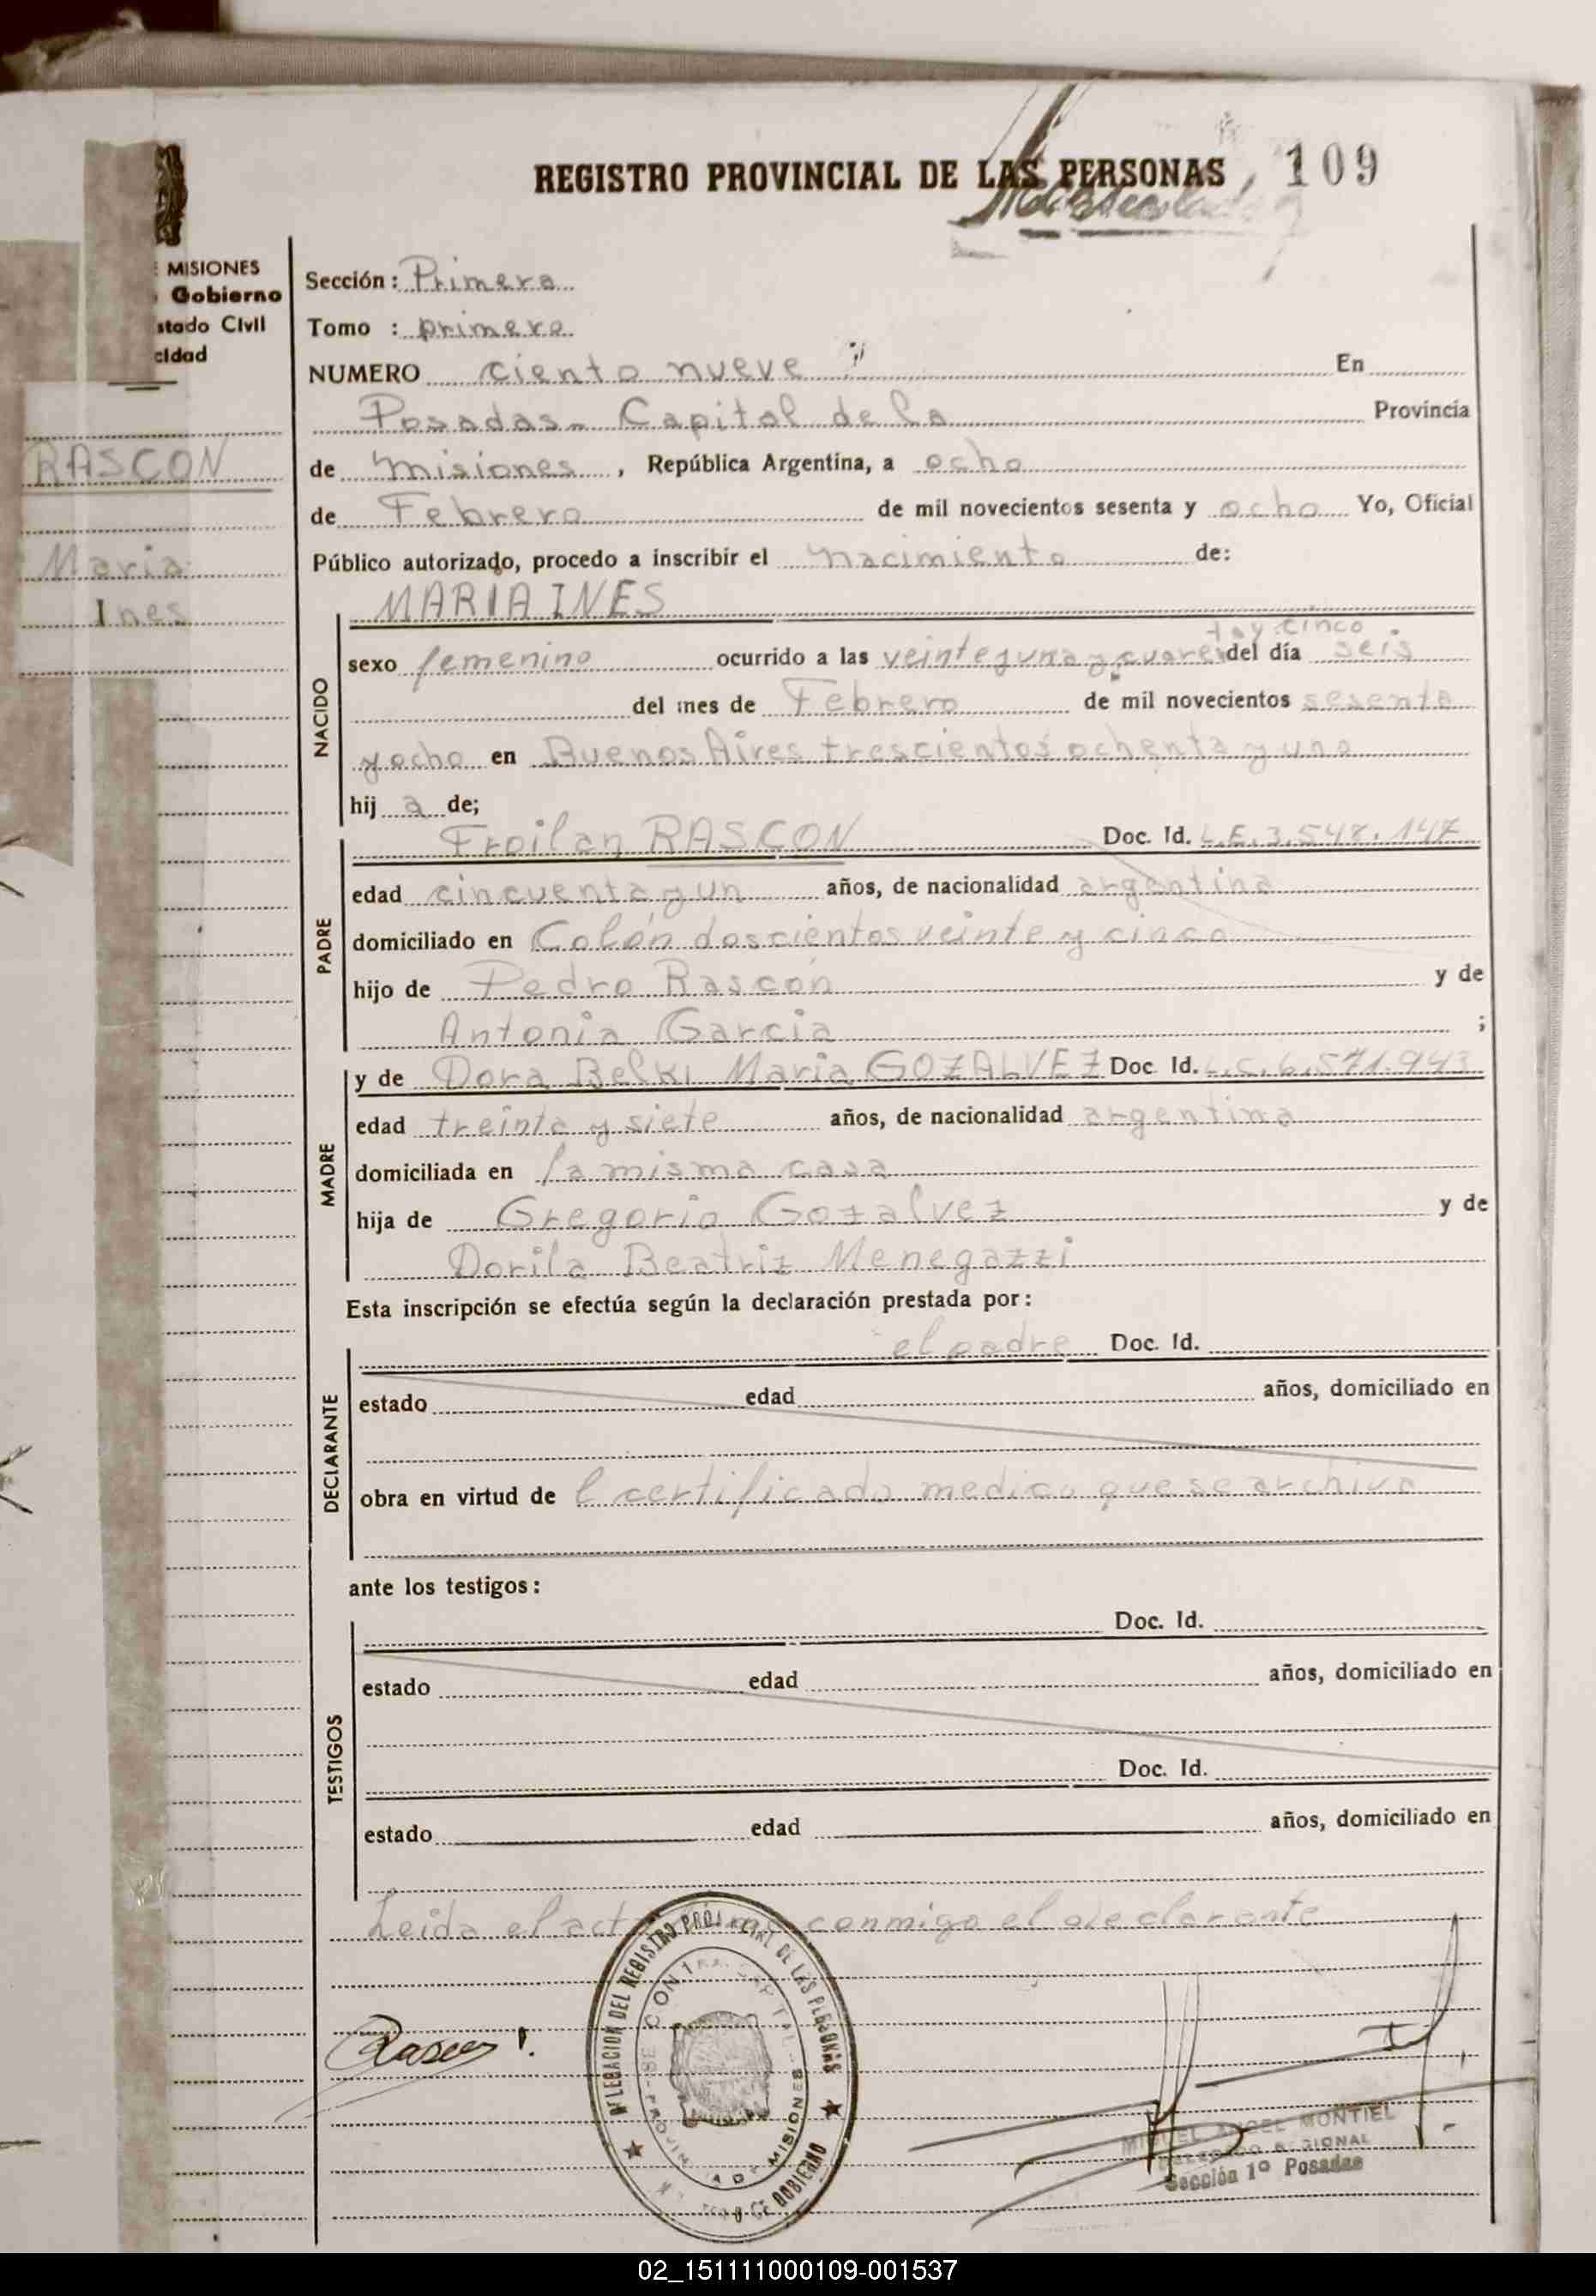 REGISTRO PROVINCIAL DE LAS PERSONAS
109
MISIONES
Gobierno
stado Civil
cidad
RASCON
Maria
Ines
Sección: Primera
Tomo : primero
NUMERO ciento nueve En
Posadas - Capital de la Provincia
de misiones, República Argentina, a ocho
de Febrero de mil novecientos sesenta y ocho Yo, Oficial
Público autorizado, procedo a inscribir el nacimiento de:
NACIDO
MARIA INES
ta y cinco
sexo femenino ocurrido a las veinte y una y cuaren del día seis
del mes de Febrero de mil novecientos sesenta
y ocho en Buenos Aires trescientos ochenta y uno
hij a de;
PADRE
Froilan RASCON Doc. Id. L.E. 3.548.147
edad cincuenta y un años, de nacionalidad argentina
domiciliado en Colón doscientos veinte y cinco
hijo de Pedro Rascón y de
Antonia Garcia ;
MADRE
y de Dora Belki Maria GOZALVEZ Doc. Id. L.C. 6.571.943
edad treinta y siete años, de nacionalidad argentina
domiciliada en la misma casa
hija de Gregorio Gozalvez y de
Dorila Beatriz Menegazzi
Esta inscripción se efectúa según la declaración prestada por:
DECLARANTE
el padre Doc. Id.
estado edad años, domiciliado en
obra en virtud de l certificado medico que se archiva
ante los testigos:
TESTIGOS
Doc. Id.
estado edad años, domiciliado en
Doc. Id.
estado edad años, domiciliado en
Leida el acta conmigo el declarante
DELEGACION DEL REGISTRO DE LAS PERSONAS
MISIONES
DE GOBIERNO
MIGUEL ANGEL MONTIEL
DELEGADO REGIONAL
Sección 1º Posadas
02_151111000109-001537